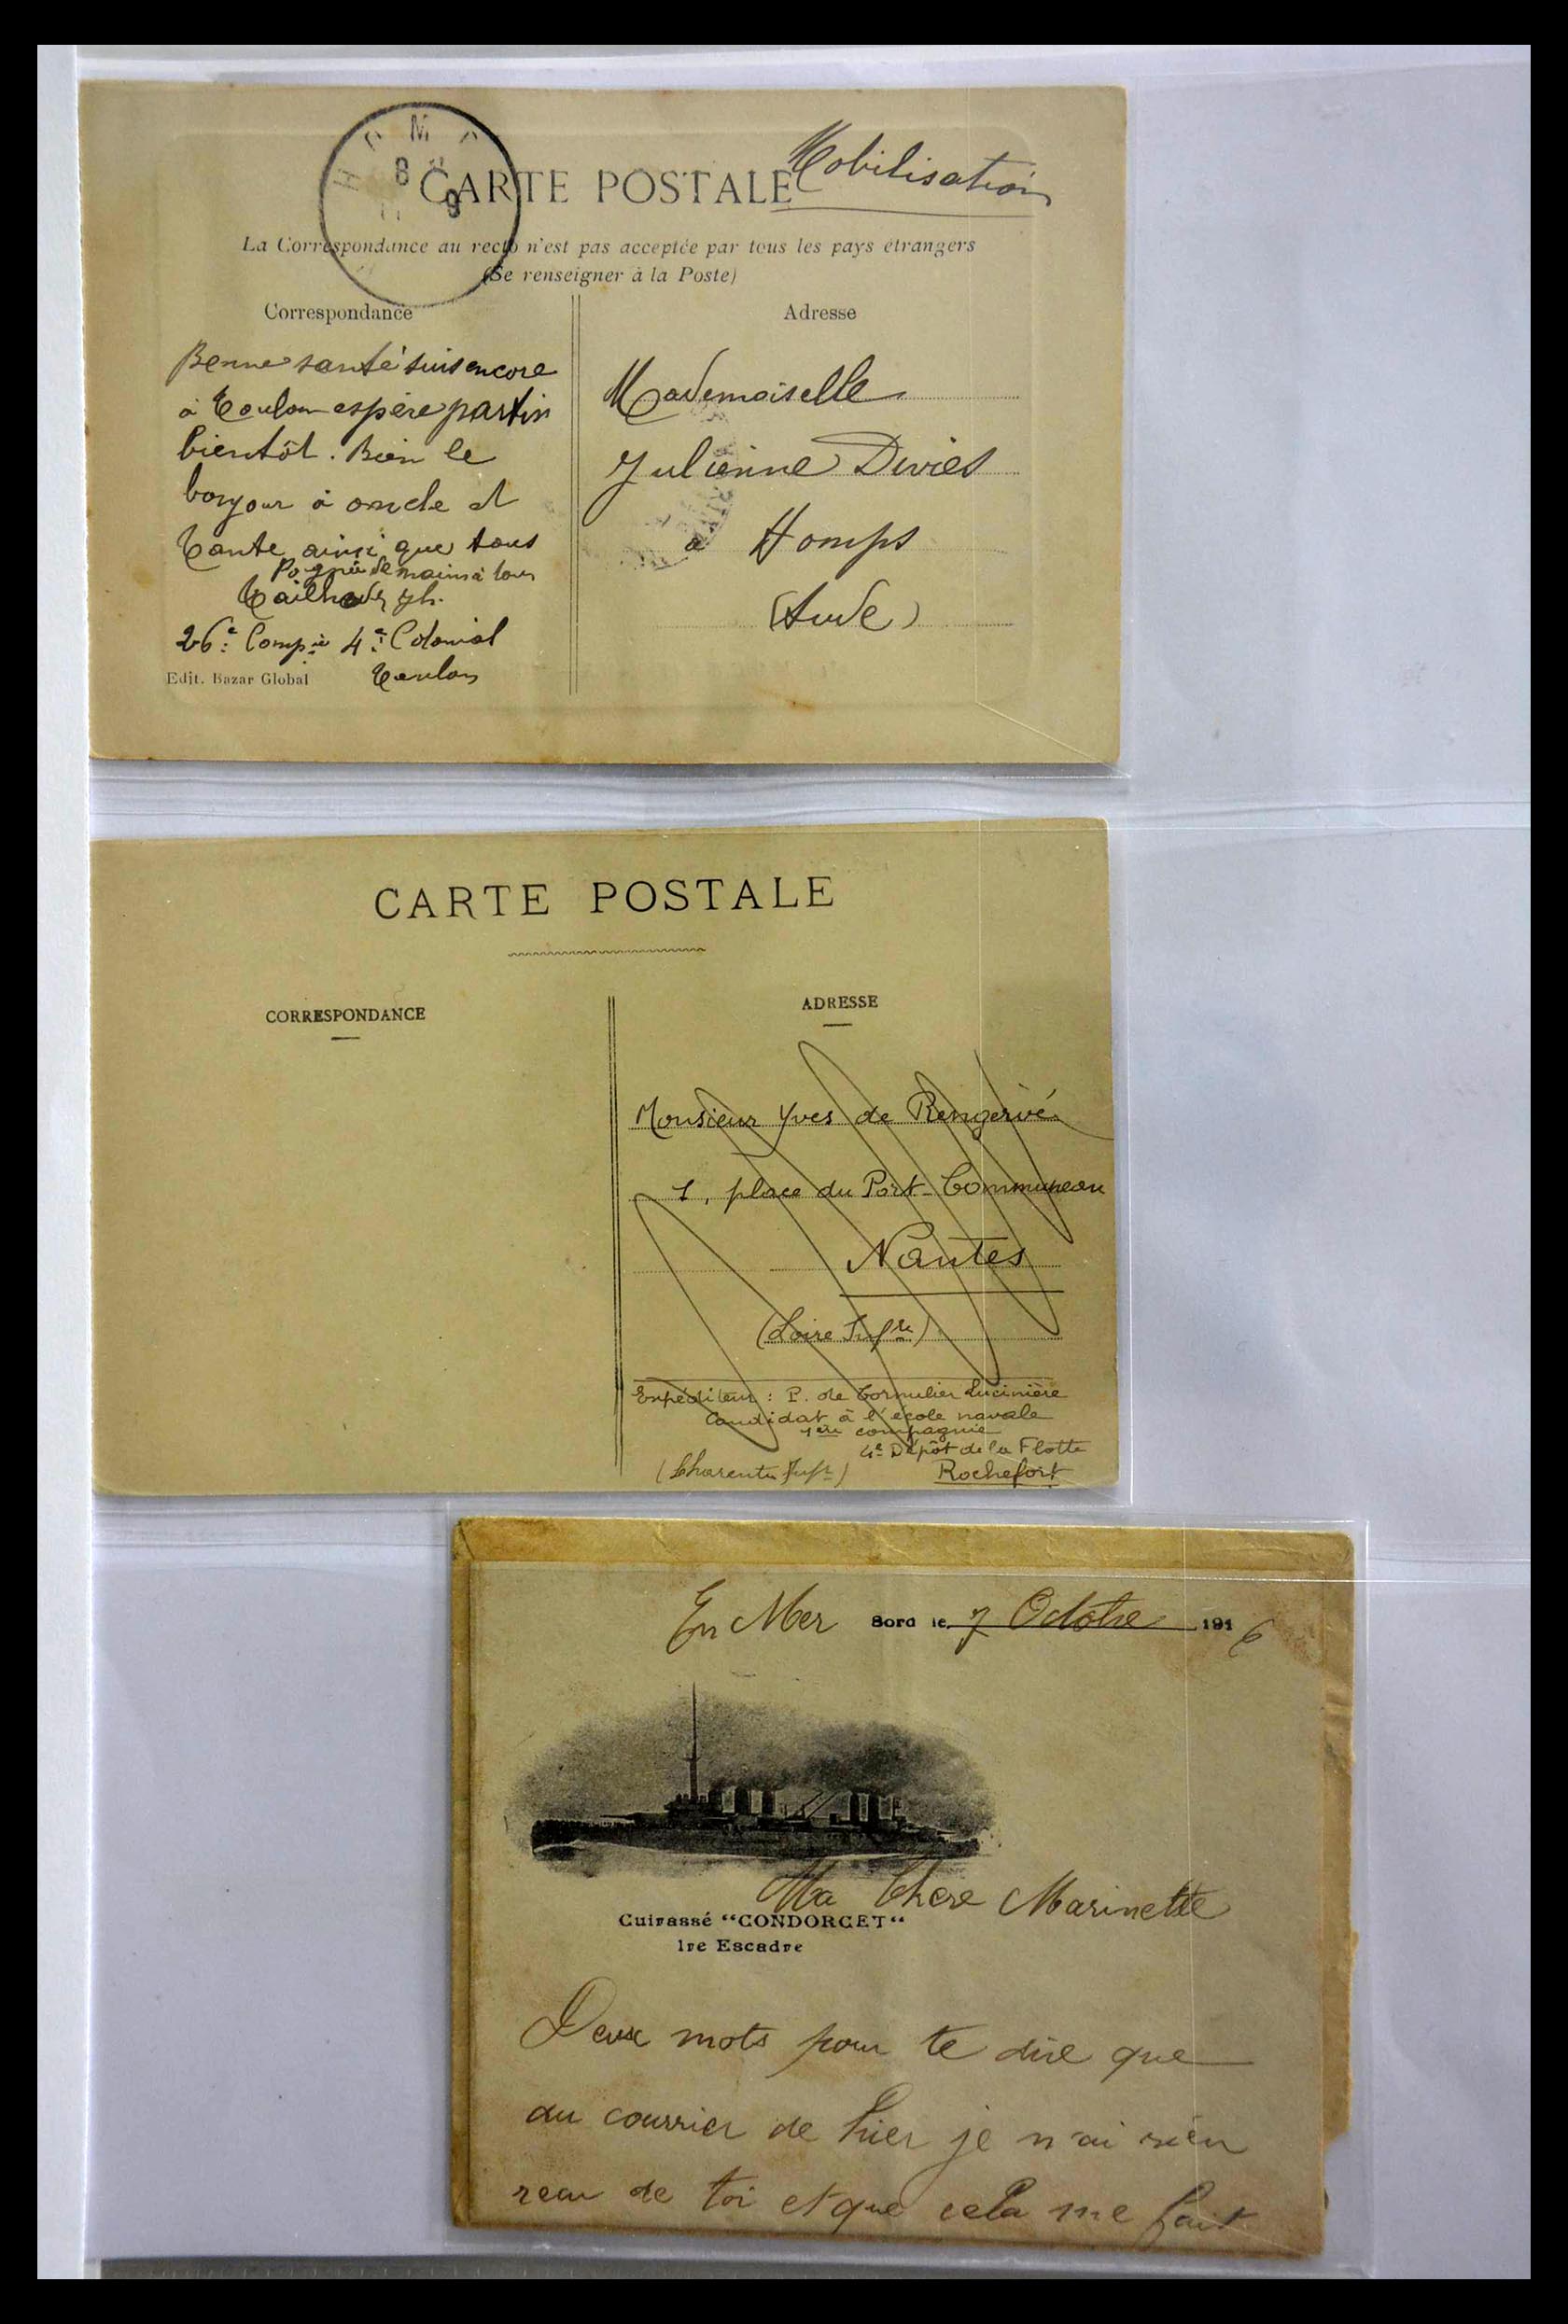 Mobilisation
CARTE POSTALE
La Correspondance au recto n'est pas acceptée par tous les pays étrangers
(Se renseigner à la Poste)
Correspondance
Bonne santé suis encore
à Toulon espère partir
bientôt. Bien le
bonjour à oncle et
Tante ainsi que tous
Poignée de mains à tous
26e Compie 4e Colonial
Toulon
Edit. Bazar Global
Adresse
Mademoiselle
Julienne Diviès
à Homps
(Aude)
CARTE POSTALE
CORRESPONDANCE
ADRESSE
Monsieur Yves de Rengervé
1, place du Port-Communeau
Nantes
(Loire Infre)
Expéditeur : P. de Cornulier Lucinière
Candidat à l'école navale
1ère compagnie
4e Dépôt de la Flotte
(Charente Infre) Rochefort
En Mer Bord le 7 Octobre 1916
Ma Chere Marinette
Cuirassé "CONDORCET"
1re Escadre
Deux mots pour te dire que
au courrier de hier je n'ai rien
recu de toi et que cela me fait